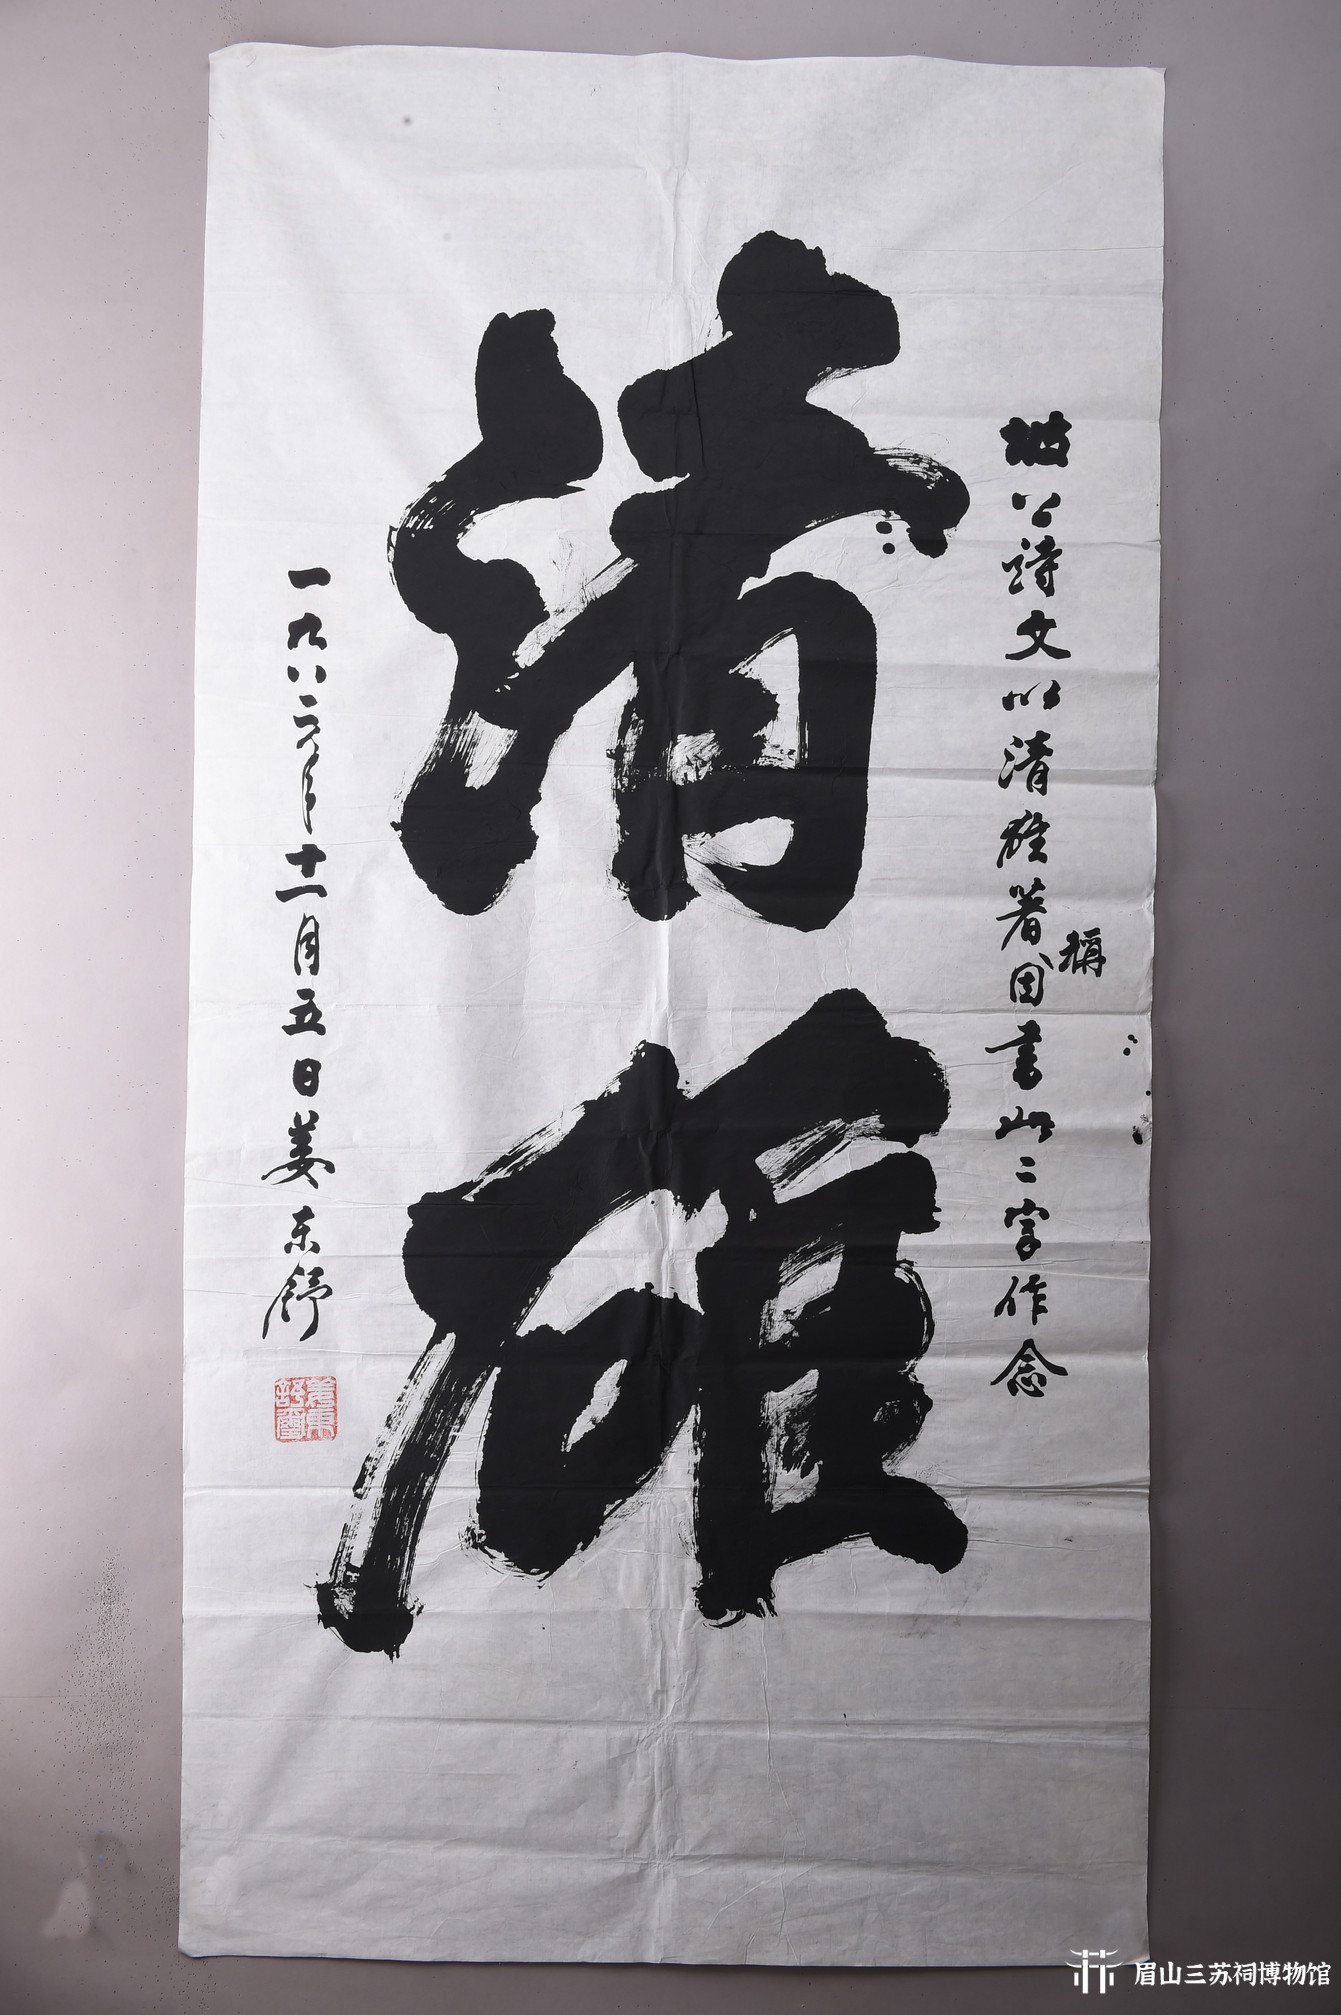 清雄
坡公詩文以清雄著稱因書此二字作念
一九八六年十一月五日姜东舒
姜東舒璽
眉山三苏祠博物馆